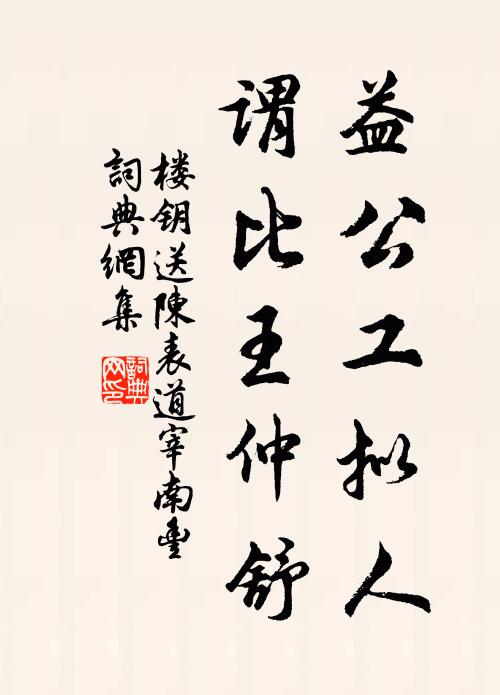 益公工拟人
謂比王仲舒
楼钥送陳表道宰南豐
詞典網集
詞典网印